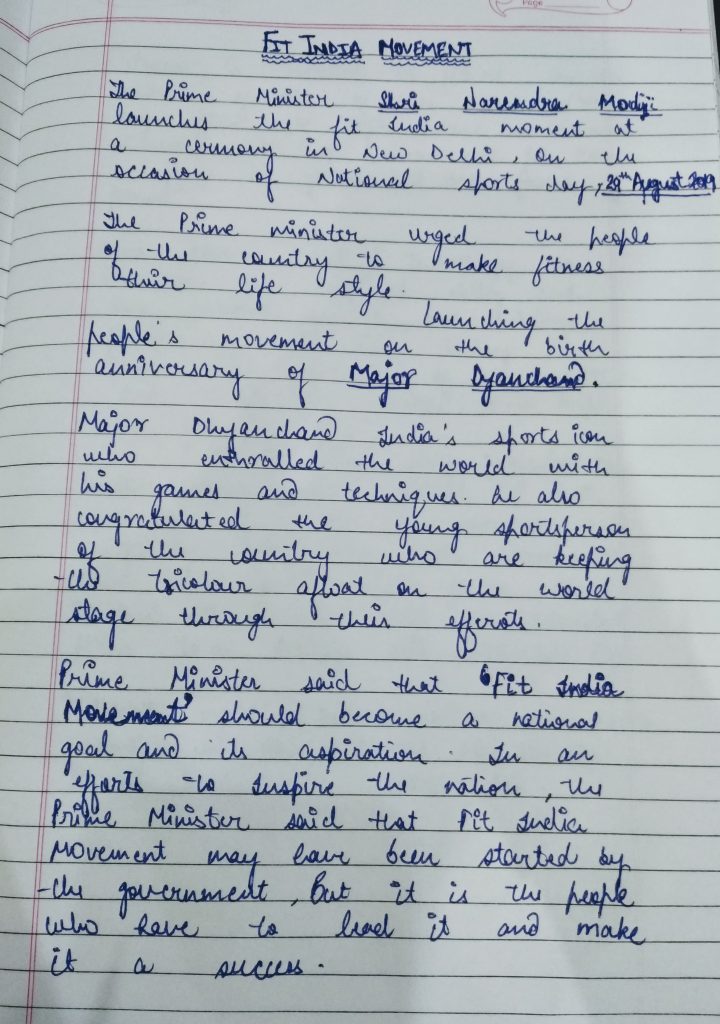 Page
FIT INDIA MOVEMENT
The Prime Minister Shri Narendra Modiji
launches the fit India moment at
a cermony in New Delhi, on the
occasion of National sports day, 29th August 2019
The Prime minister urged the people
of the country to make fitness
their life style.
Launching the
people's movement on the birth
anniversary of Major Dyanchand.
Major Dhyanchand India's sports icon
who enthralled the world with
his games and techniques. he also
congratulated the young sportsperson
of the country who are keeping
the tricolour afloat on the world
stage through their efforts.
Prime Minister said that 'Fit India
Movement' should become a national
goal and its aspiration. In an
efforts to inspire the nation, the
Prime Minister said that Fit India
Movement may have been started by
the government, But it is the people
who have to lead it and make
it a success.